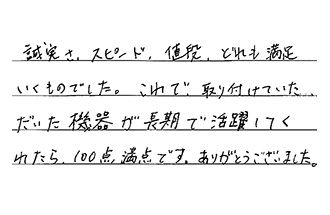 誠実さ、スピード、値段、どれも満足
いくものでした。これで、取り付けていた、
だいた機器が長期で活躍してく
れたら、100点満点です。ありがとうございました。